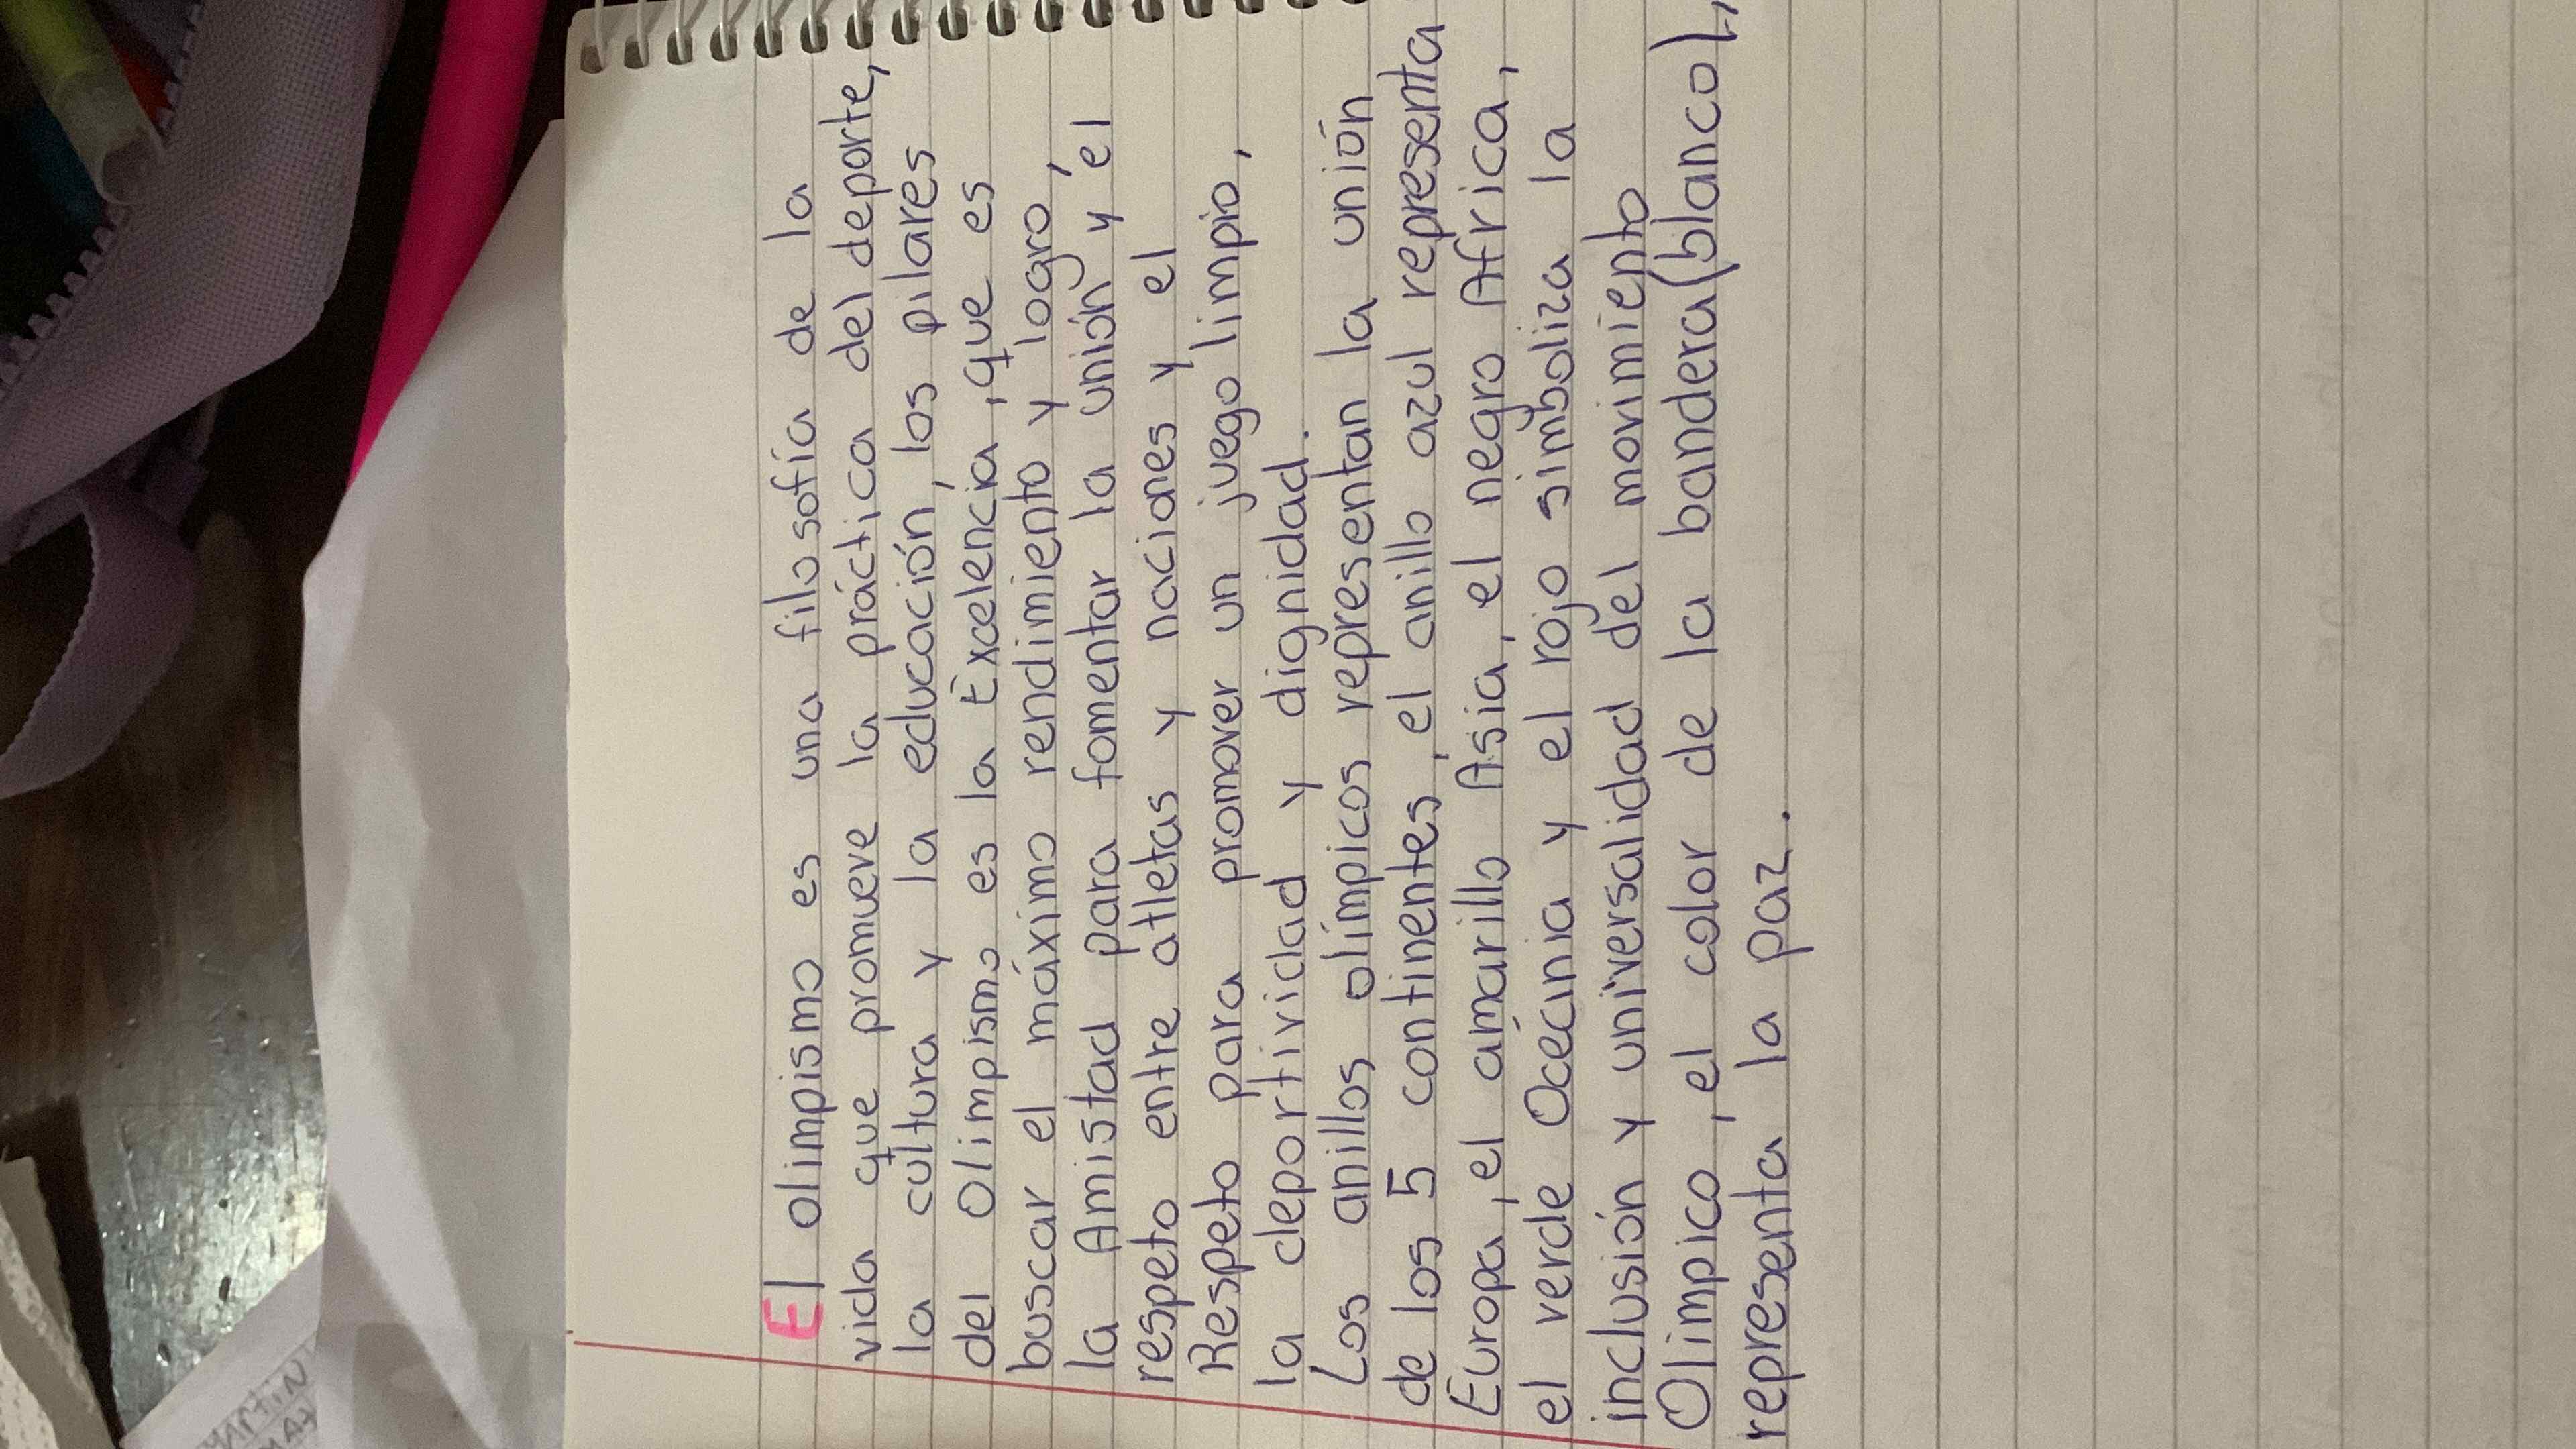 El olimpismo es una filosofía de la
vida que promueve la práctica del deporte,
la cultura y la educación, los pilares
del Olimpismo es la Excelencia, que es
buscar el máximo rendimiento y logro,
la Amistad para fomentar la unión y el
respeto entre atletas y naciones y el
Respeto para promover un juego limpio,
la deportividad y dignidad.
Los anillos olímpicos representan la unión
de los 5 continentes, el anillo azul representa
Europa, el amarillo Asia, el negro Africa,
el verde Ocecinia y el rojo simboliza la
inclusión y universalidad del movimiento
Olimpico, el color de la bandera (blanco),
representa la paz.